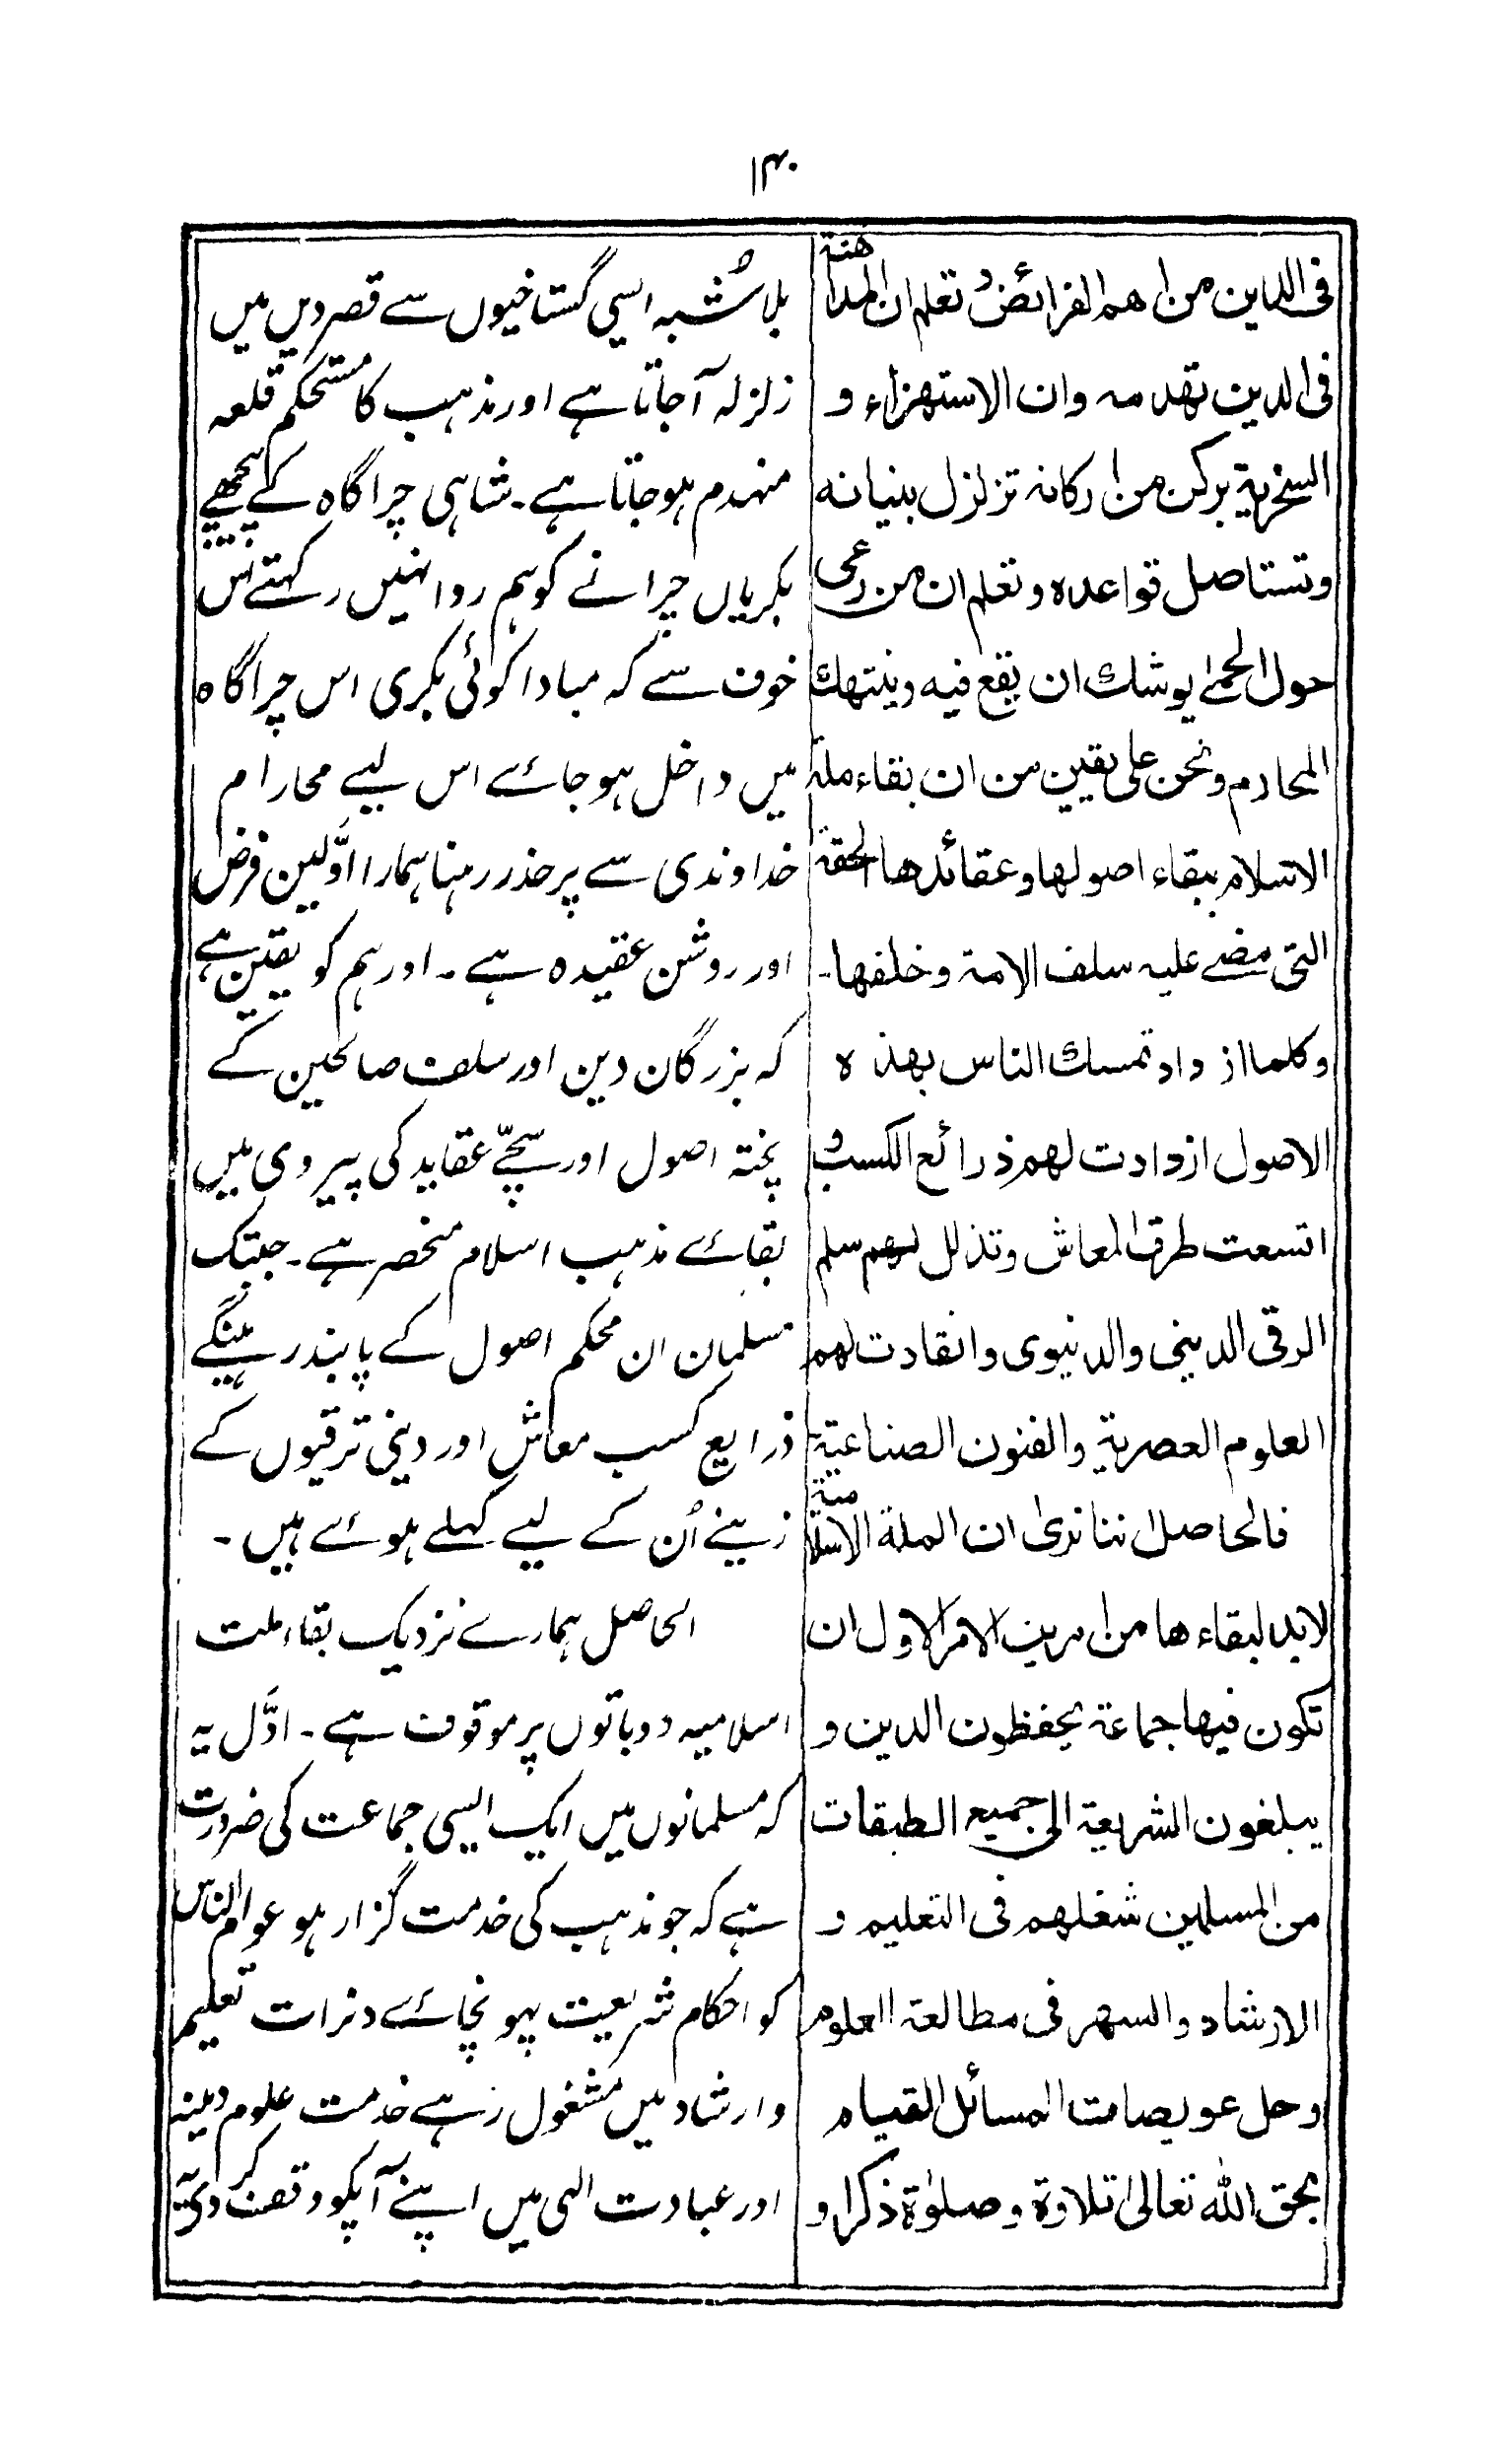 ۱۴۰
فی الدین من اهم الفرائض و تعلم ان المداهنة
فی الدین تهدمه وان الاستهزاء و
السخریة برکن من ارکانه تزلزل بنیانه
وتستاصل قواعده ونعلم ان من رعی
حول الحمیٰ یوشك ان یقع فیه وینتهك
المحارم ونحن علی یقین من ان بقاء ملة
الاسلام ببقاء اصولها وعقائدها الحقة
التی مضے علیه سلف الامة وخلفها۔
وکلما ازداد تمسك الناس بهذه
الاصول ازدادت لهم ذرائع الکسب و
اتسعت طرق المعاش وتذلل لهم سلم
الرقی الدینی والدنیوی وانقادت لهم
العلوم العصریة والفنون الصناعیة
فالحاصل اننا نریٰ ان الملة الاسلامیة
لابد لبقاءها من امرین الامر الاول ان
تکون فیها جماعة یحفظون الدین و
یبلغون الشریعة الی جمیع الطبقات
من المسلمین شغلهم فی التعلیم و
الارشاد والسهر فی مطالعة العلوم
وحل عویصات المسائل القیام
بحق الله تعالیٰ تلاوة وصلوٰة ذکرا و
بلاشُبہ ایسی گستاخیوں سے قصر دیں میں
زلزلہ آجاتا ہے اور مذہب کا مستحکم قلعہ
منہدم ہوجاتا ہے۔ شاہی چراگاہ کے پیچھے
بکریاں چرانے کو ہم روا نہیں رکہتے اس
خوف سے کہ مبادا کوئی بکری اس چراگاہ
میں داخل ہوجائے اس لیے محارم
خداوندی سے پرحذر رہنا ہمارا اوّلین فرض
اور روشن عقیدہ ہے۔ اور ہم کو یقین ہے
کہ بزرگان دین اور سلف صالحین کے
پختہ اصول اور سچّے عقاید کی پیروی میں
بقائے مذہب اسلام منحصر ہے۔ جبتک
مسلمان ان محکم اصول کے پابند رہینگے
ذرایع کسب معاش اور دینی ترقیوں کے
زینے اُن کے لیے کہلے ہوئے ہیں۔
الحاصل ہمارے نزدیک بقاء ملت
اسلامیہ دو باتوں پر موقوف ہے۔ اوّل یہ
کہ مسلمانوں میں ایک ایسی جماعت کی ضرورت
ہے کہ جو مذہب کی خدمت گزار ہو عوام الناس
کو احکام شریعت پہونچائے دنرات تعلیم
وارشاد میں مشغول رہے خدمت علوم دینیہ
اور عبادت الہی میں اپنے آپکو وقف کردے یہ